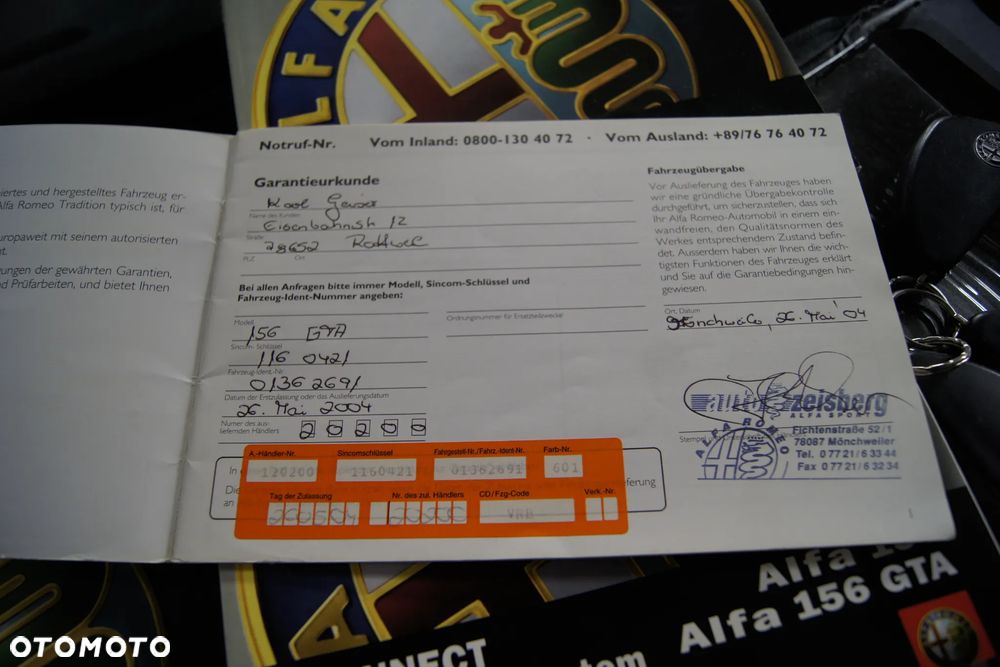 ALFA
Notruf-Nr. Vom Inland: 0800-130 40 72 · Vom Ausland: +89/76 76 40 72
iertes und hergestelltes Fahrzeug er-
Alfa Romeo Tradition typisch ist, für
uropaweit mit seinem autorisierten
t.
ungen der gewährten Garantien,
d Prüfarbeiten, und bietet Ihnen
Garantieurkunde
Name des Kunden
Eisenbahnstr 12
Straße
78652 Rottweil
PLZ Ort
Bei allen Anfragen bitte immer Modell, Sincom-Schlüssel und
Fahrzeug-Ident-Nummer angeben:
Modell
156 GTA
Sincom-Schlüssel
116 0421
Fahrzeug-Ident.-Nr.
01362691
Datum der Erstzulassung oder das Auslieferungsdatum
26. Mai 2004
Nummer des aus-
liefernden Händlers
20200
Ordnungsnummer für Ersatzteilzwecke
Fahrzeugübergabe
Vor Auslieferung des Fahrzeuges haben
wir eine gründliche Übergabekontrolle
durchgeführt, um sicherzustellen, dass sich
Ihr Alfa Romeo-Automobil in einem ein-
wandfreien, den Qualitätsnormen des
Werkes entsprechendem Zustand befin-
det. Ausserdem haben wir Ihnen die wich-
tigsten Funktionen des Fahrzeuges erklärt
und Sie auf die Garantiebedingungen hin-
gewiesen.
Ort, Datum
26. Mai 04
auto zeisberg
ALFA SPORT
Stempel und
ALFA ROMEO
Fichtenstraße 52/1
78087 Mönchweiler
Tel. 0 77 21/6 33 44
Fax 0 77 21/6 32 34
In
Die
an
ieferung
A.-Händler-Nr. Sincomschlüssel Fahrgestell-Nr./Fahrz.-Ident-Nr. Farb-Nr.
120200 1160421 01362691 601
Tag der Zulassung Nr. des zul. Händlers CD/Fzg-Code Verk.-Nr.
260504 20200 VRB
1
Alfa
Alfa 156 GTA
NNECT
tem
OTOMOTO